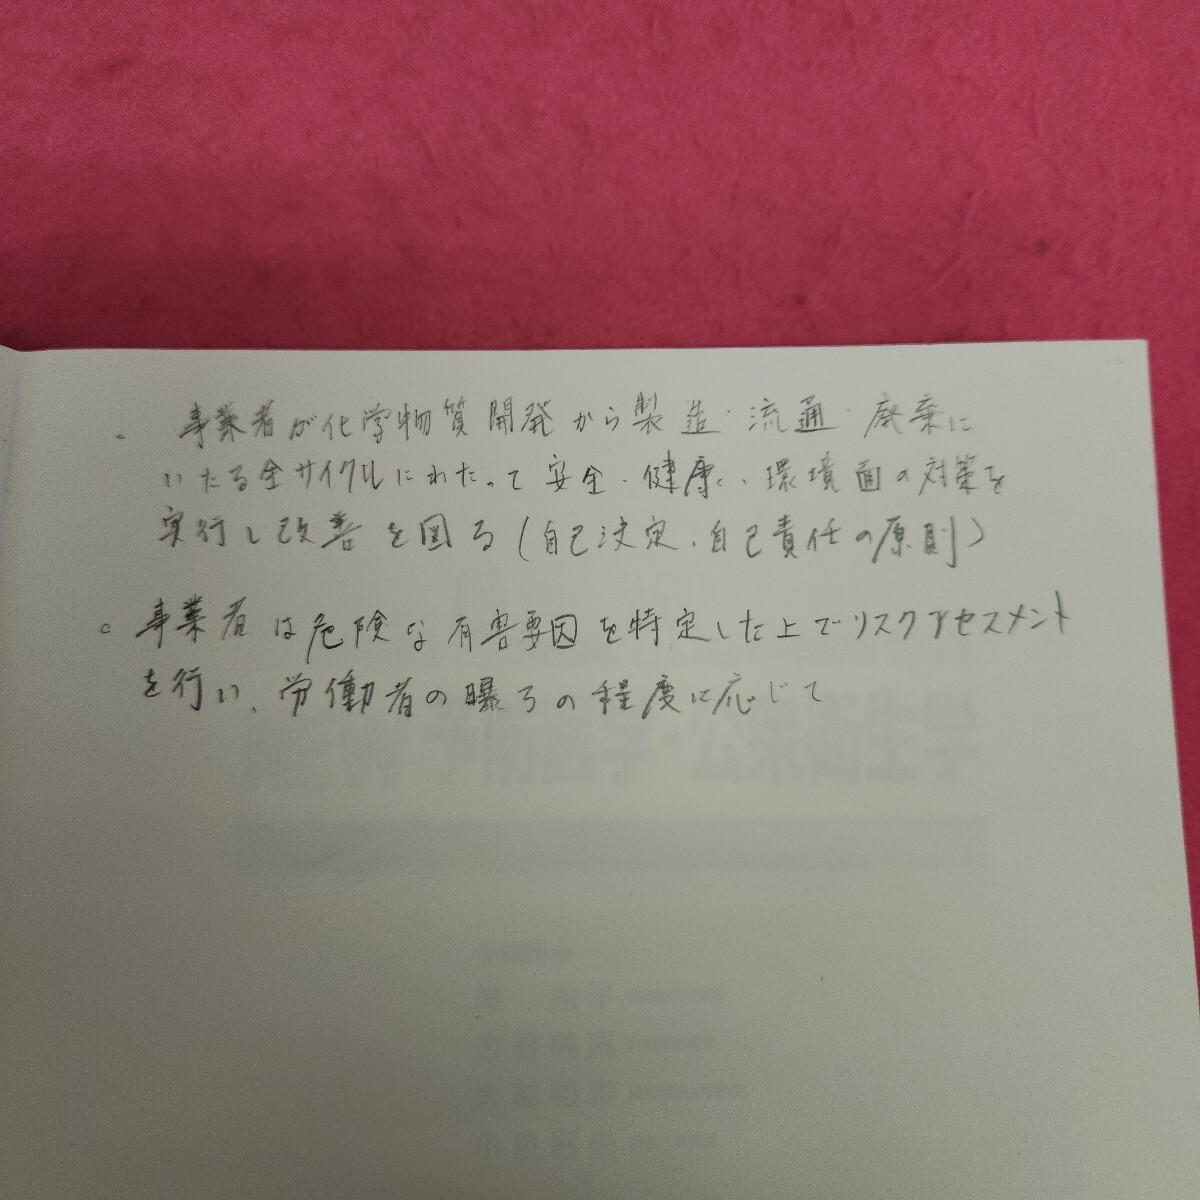 。事業者が化学物質開発から製造・流通・廃棄に
いたる全サイクルにわたって安全・健康・環境面の対策を
実行し改善を図る(自己決定、自己責任の原則)
。事業者は危険な有害要因を特定した上でリスクアセスメント
を行い、労働者の曝ろの程度に応じて
予防医学・公衆衛生学